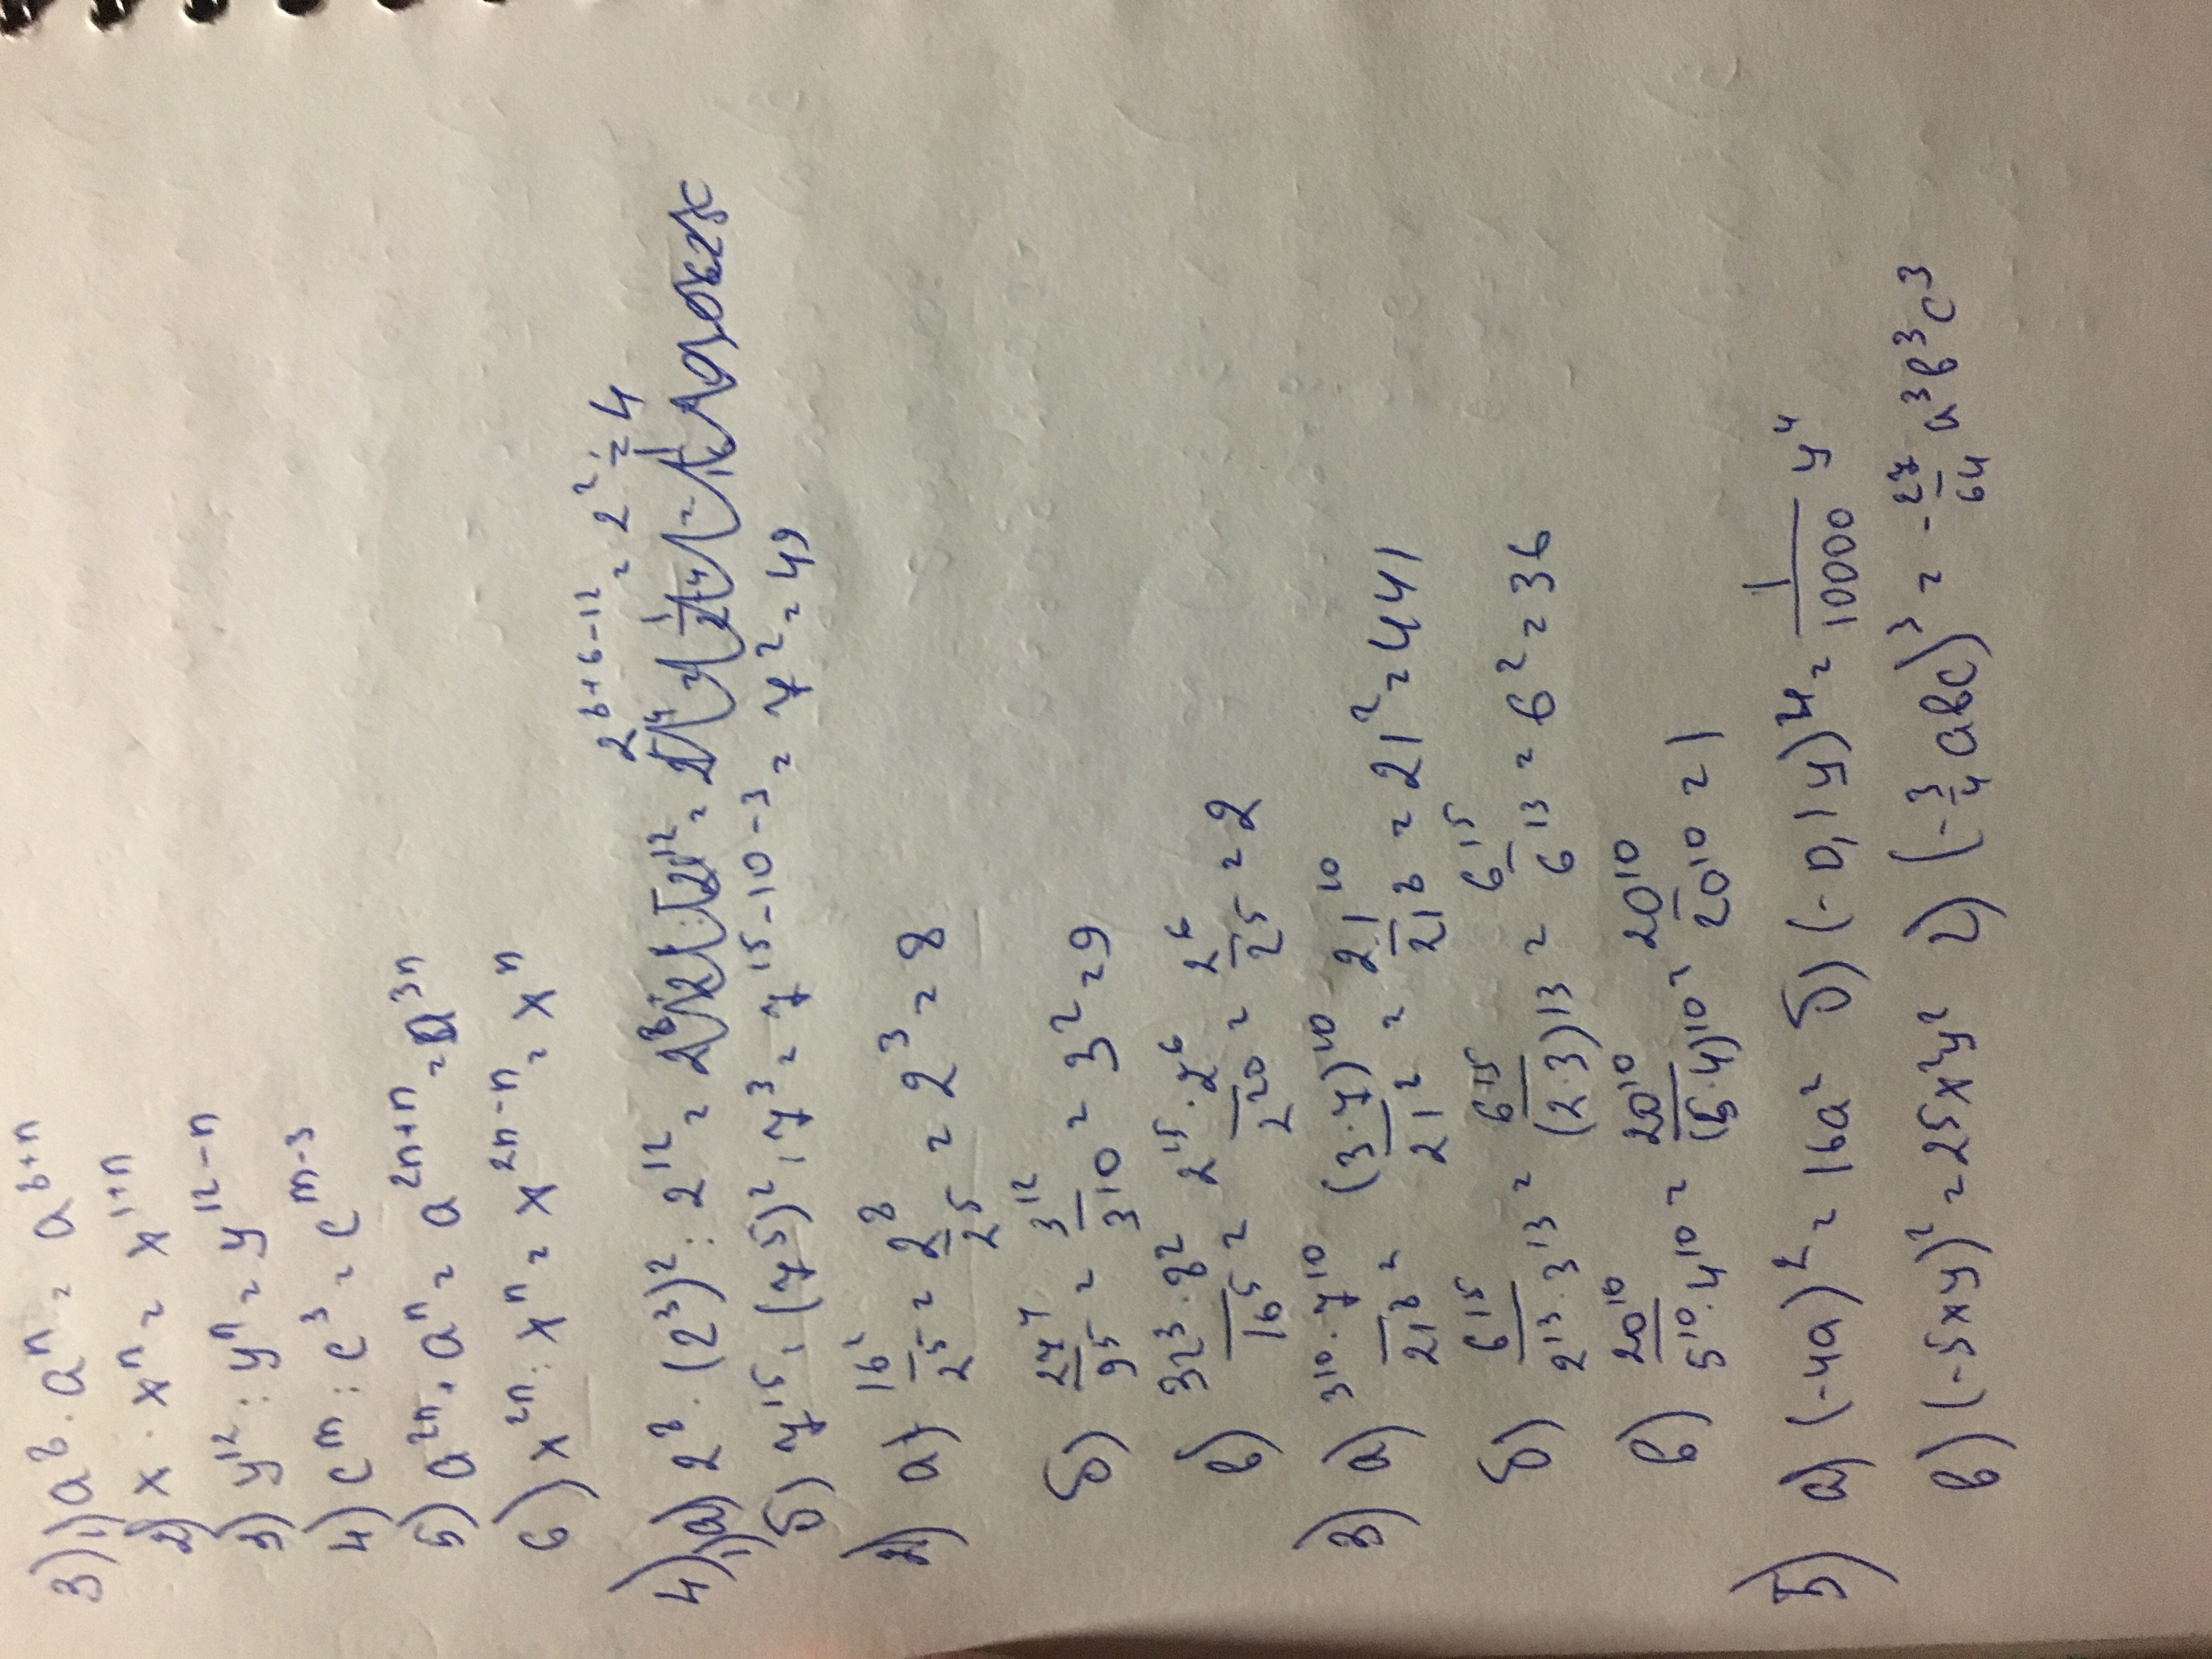 3) 1) a⁸ · aⁿ = a⁸⁺ⁿ
2) x · xⁿ = x¹⁺ⁿ
3) y¹² : yⁿ = y¹²⁻ⁿ
4) cᵐ : c³ = cᵐ⁻³
5) a²ⁿ · aⁿ = a²ⁿ⁺ⁿ = a³ⁿ
6) x²ⁿ : xⁿ = x²ⁿ⁻ⁿ = xⁿ
2⁸⁺⁶⁻¹² = 2² = 4
4) 1) а) 2⁸ · (2³)² : 2¹² =
б) 7¹⁵ : (7⁵)² : 7³ = 7¹⁵⁻¹⁰⁻³ = 7² = 49
2) а) 16²/2⁵ = 2⁸/2⁵ = 2³ = 8
б) 27⁴/9⁵ = 3¹²/3¹⁰ = 3² = 9
в) 32³ · 8²/16⁵ = 2¹⁵ · 2⁶/2²⁰ = 2⁶/2⁵ = 2
3) а) 3¹⁰ · 7¹⁰/21⁸ = (3 · 7)¹⁰/21² = 21¹⁰/21⁸ = 21² = 441
б) 6¹⁵/2¹³ · 3¹³ = 6¹⁵/(2 · 3)¹³ = 6¹⁵/6¹³ = 6² = 36
в) 20¹⁰/5¹⁰ · 4¹⁰ = 20¹⁰/(5 · 4)¹⁰ = 20¹⁰/20¹⁰ = 1
5) а) (-4a)² = 16a² б) (-0,1y)⁴ = 1/10000 y⁴
в) (-5xy)² = 25x²y² г) (-3/4 abc)³ = -27/64 a³b³c³